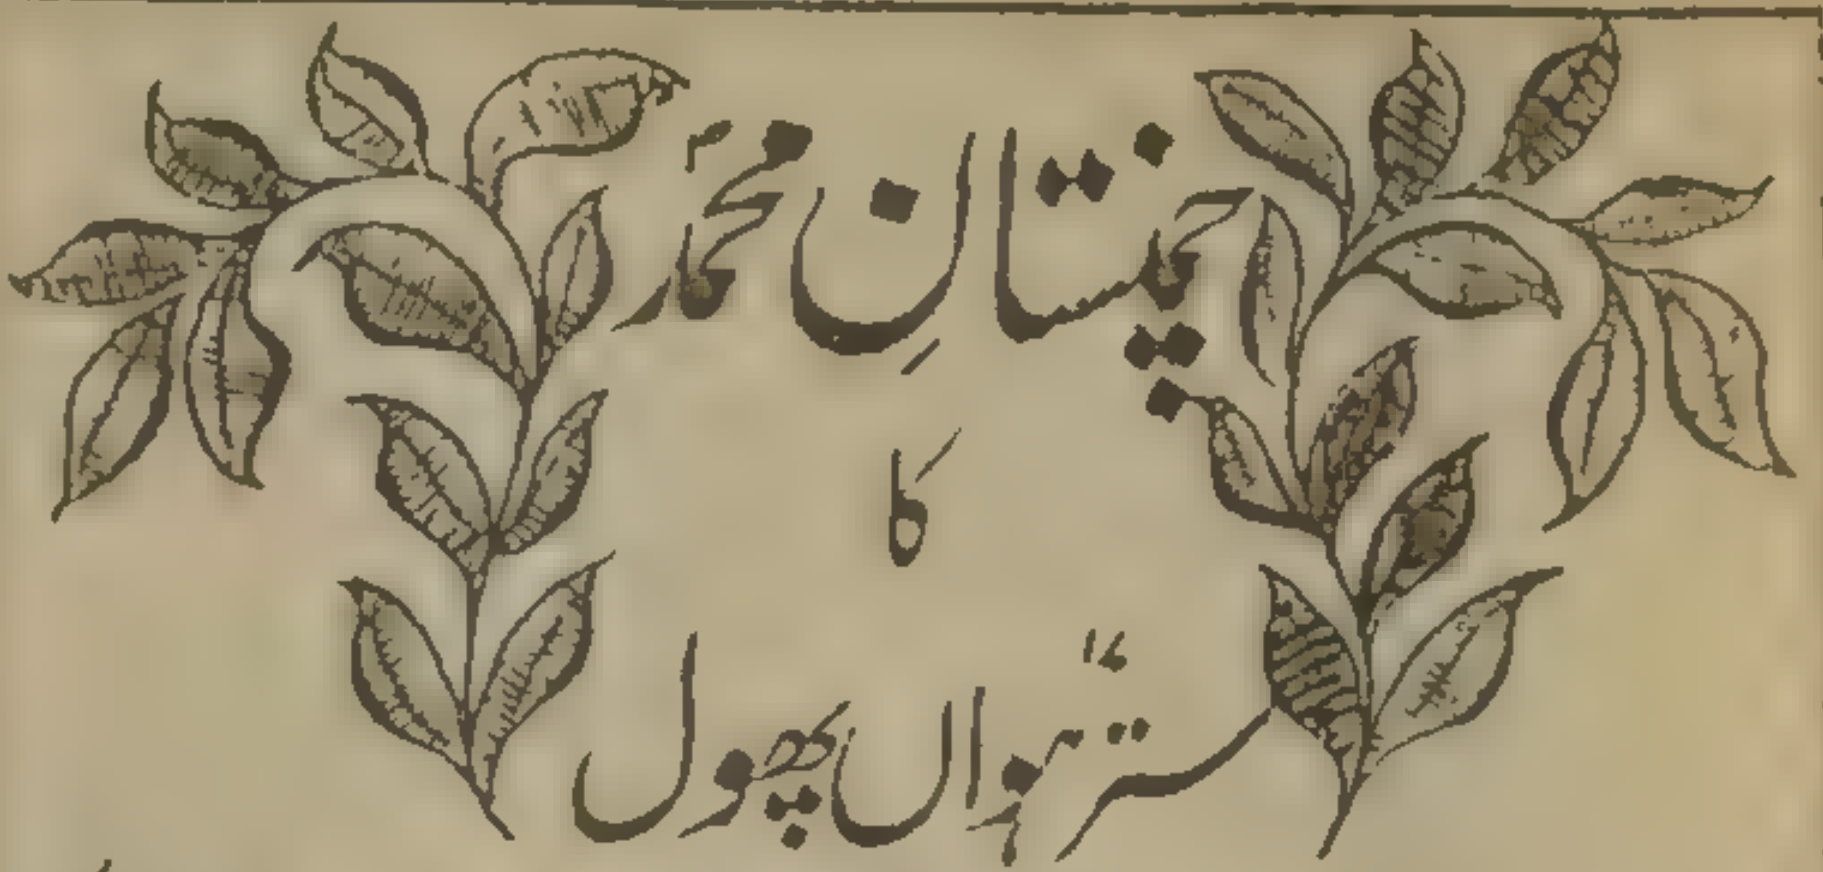 چمنستانِ محمدؐ
کا
سترہواں پھول